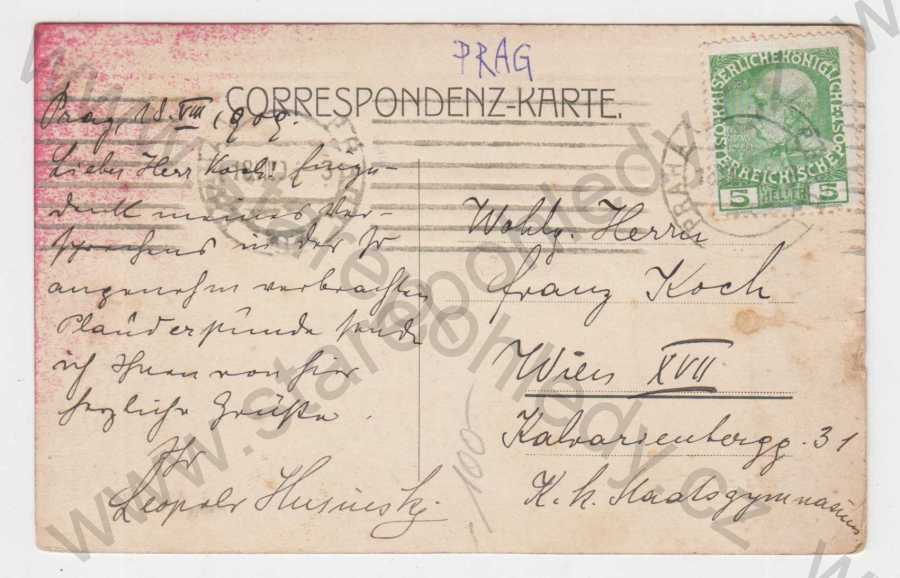 PRAG
CORRESPONDENZ-KARTE.
KAISERLICHE KÖNIGLICHE
ÖSTERREICHISCHE
5 HELLER 5
PRAHA
Prag, 18. VIII. 1909.
Lieber Herr Koch! Einge-
denk meines Ver-
sprechens in der so
angenehm verbrachten
Plauderstunde sende
ich Ihnen von hier
herzliche Grüße.
Ihr
Leopold Husinsky.
Wohlg. Herrn
Franz Koch
Wien XVII
Kalvarienbergg. 31
K. k. Staatsgymnasium
100-
www.starepohledy.cz